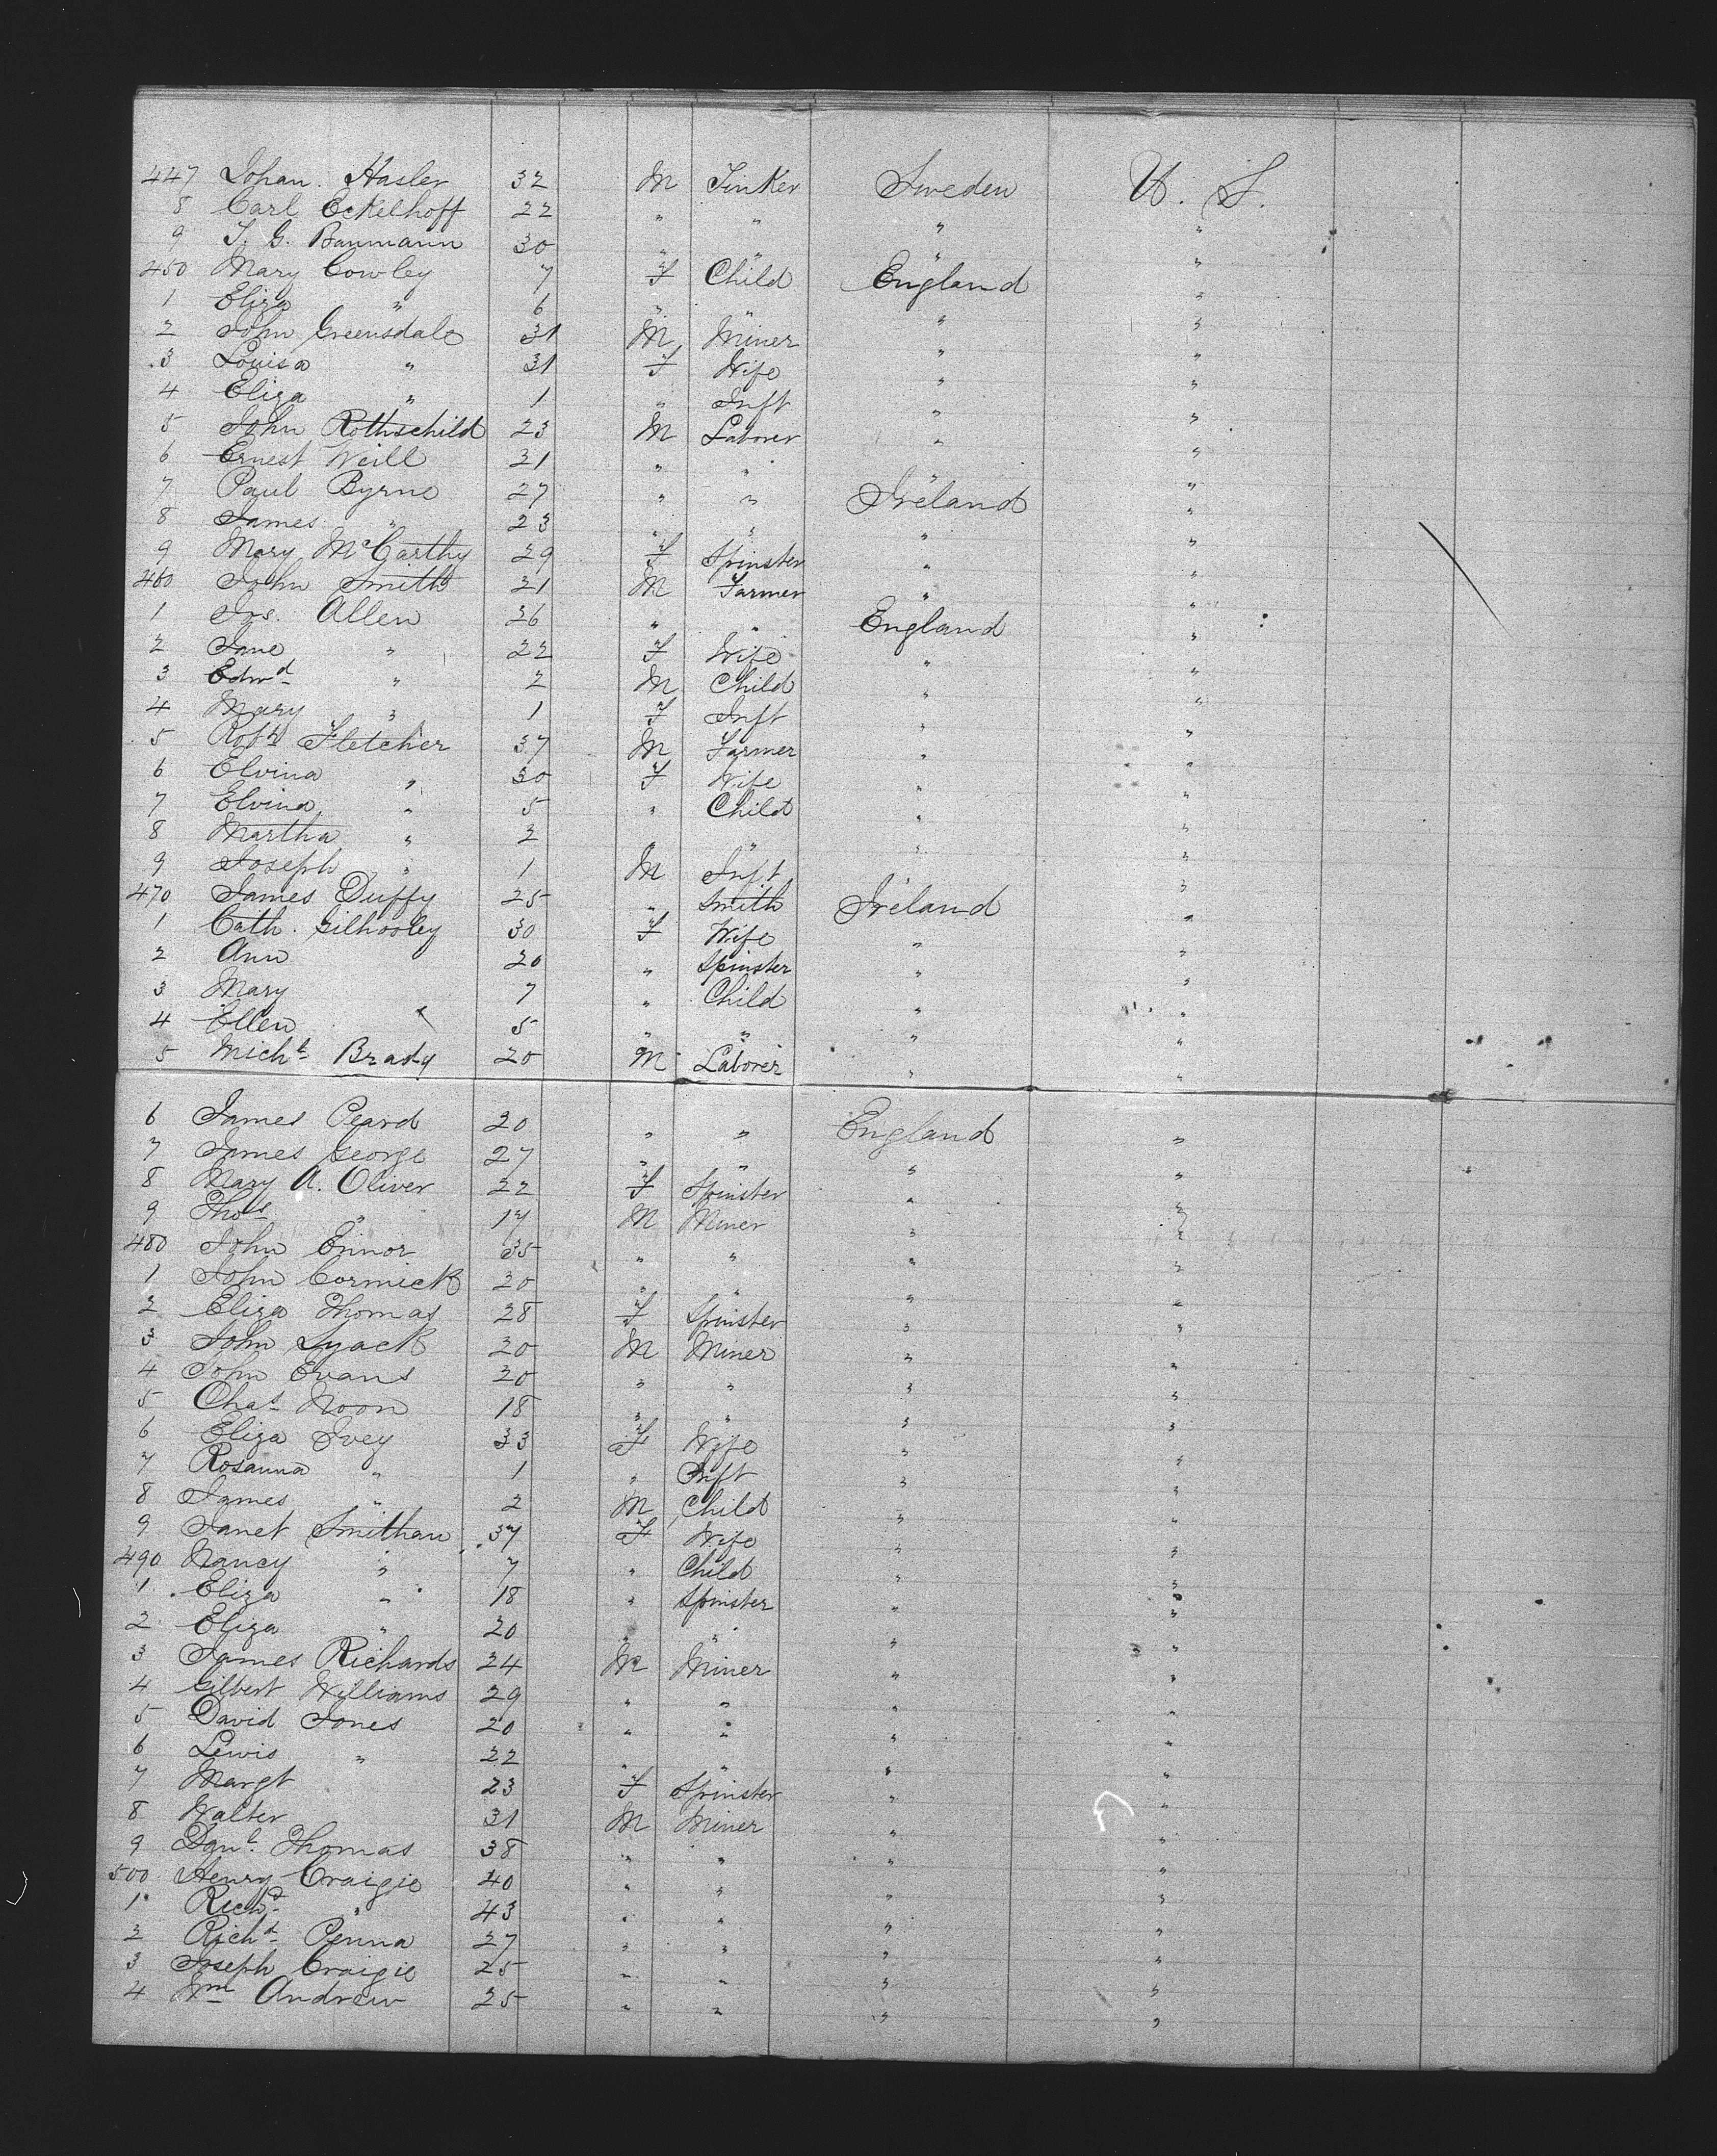 447 Johan. Hasler 32 M Tinker Sweden U. S.
8 Carl Eckelhoff 22 " " " "
9 J. G. Baumann 30 " " " "
450 Mary Cowley 7 F Child England "
1 Eliza " 6 " " " "
2 John Greensdale 31 M Miner " "
3 Louisa " 31 F Wife " "
4 Eliza " 1 " Inft " "
5 John Rothschild 23 M Laborer " "
6 Ernest Weill 21 " " " "
7 Paul Byrne 27 " " Ireland "
8 James " 23 " " " "
9 Mary McCarthy 29 F Spinster " "
460 John Smith 21 M Farmer " "
1 Jos. Allen 26 " " England "
2 Jane " 22 F Wife " "
3 Edwd " 2 M Child " "
4 Mary " 1 F Inft " "
5 Robt Fletcher 37 M Farmer " "
6 Elvina " 30 F Wife " "
7 Elvina " 5 " Child " "
8 Martha " 2 " " " "
9 Joseph " 1 M Inft " "
470 James Duffy 25 " Smith Ireland "
1 Cath. Gilhooley 30 F Wife " "
2 Ann 20 " Spinster " "
3 Mary 7 " Child " "
4 Ellen " 5 " " " "
5 Michl Brady 20 M Laborer " "
6 James Peard 20 " " England "
7 James George 27 " " " "
8 Mary A. Oliver 22 F Spinster " "
9 Thos " 17 M Miner " "
480 John Ennor 35 " " " "
1 John Cormick 20 " " " "
2 Eliza Thomas 28 F Spinster " "
3 John Lyack 20 M Miner " "
4 John Evans 20 " " " "
5 Chas Noon 18 " " " "
6 Eliza Ivey 33 F Wife " "
7 Rosanna " 1 " Inft " "
8 James " 2 M Child " "
9 Janet Smitham 37 F Wife " "
490 Nancy " 7 " Child " "
1 Eliza " 18 " Spinster " "
2 Eliza " 20 " " " "
3 James Richards 24 M Miner " "
4 Gilbert Williams 29 " " " "
5 David Jones 20 " " " "
6 Lewis " 22 " " " "
7 Margt 23 F Spinster " "
8 Walter 31 M Miner " "
9 Danl. Thomas 38 " " " "
500 Henry Craigie 40 " " " "
1 Richd " 43 " " " "
2 Richd Penna 27 " " " "
3 Joseph Craigie 25 " " " "
4 Wm Andrew 25 " " " "